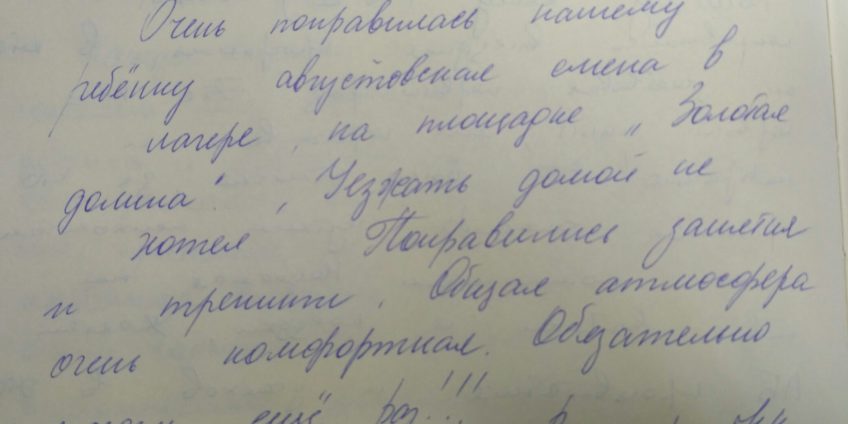 Очень понравилась нашему
ребёнку августовская смена в
лагере, на площадке „Золотая
долина". Уезжать домой не
хотел Понравились занятия
и тренинги. Общая атмосфера
очень комфортная. Обязательно
ещё раз!!!